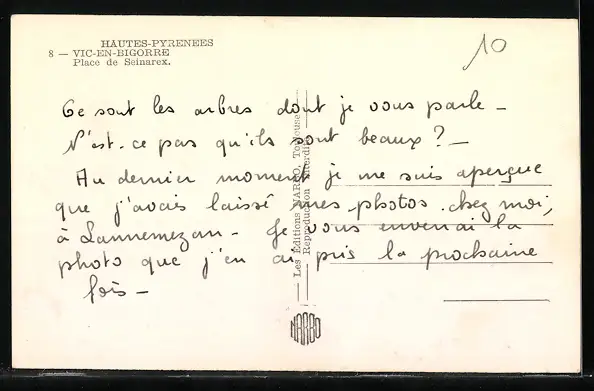 HAUTES-PYRENEES
8 — VIC-EN-BIGORRE
Place de Seinarex.
10
Ce sont les arbres dont je vous parle -
N'est-ce pas qu'ils sont beaux ? -
Au dernier moment je me suis aperçue
que j'avais laissé mes photos chez moi,
à Lannemezan - Je vous enverrai la
photo que j'en ai pris la prochaine
fois -
Les Editions NARBO, Toulouse
Reproduction interdite
NARBO